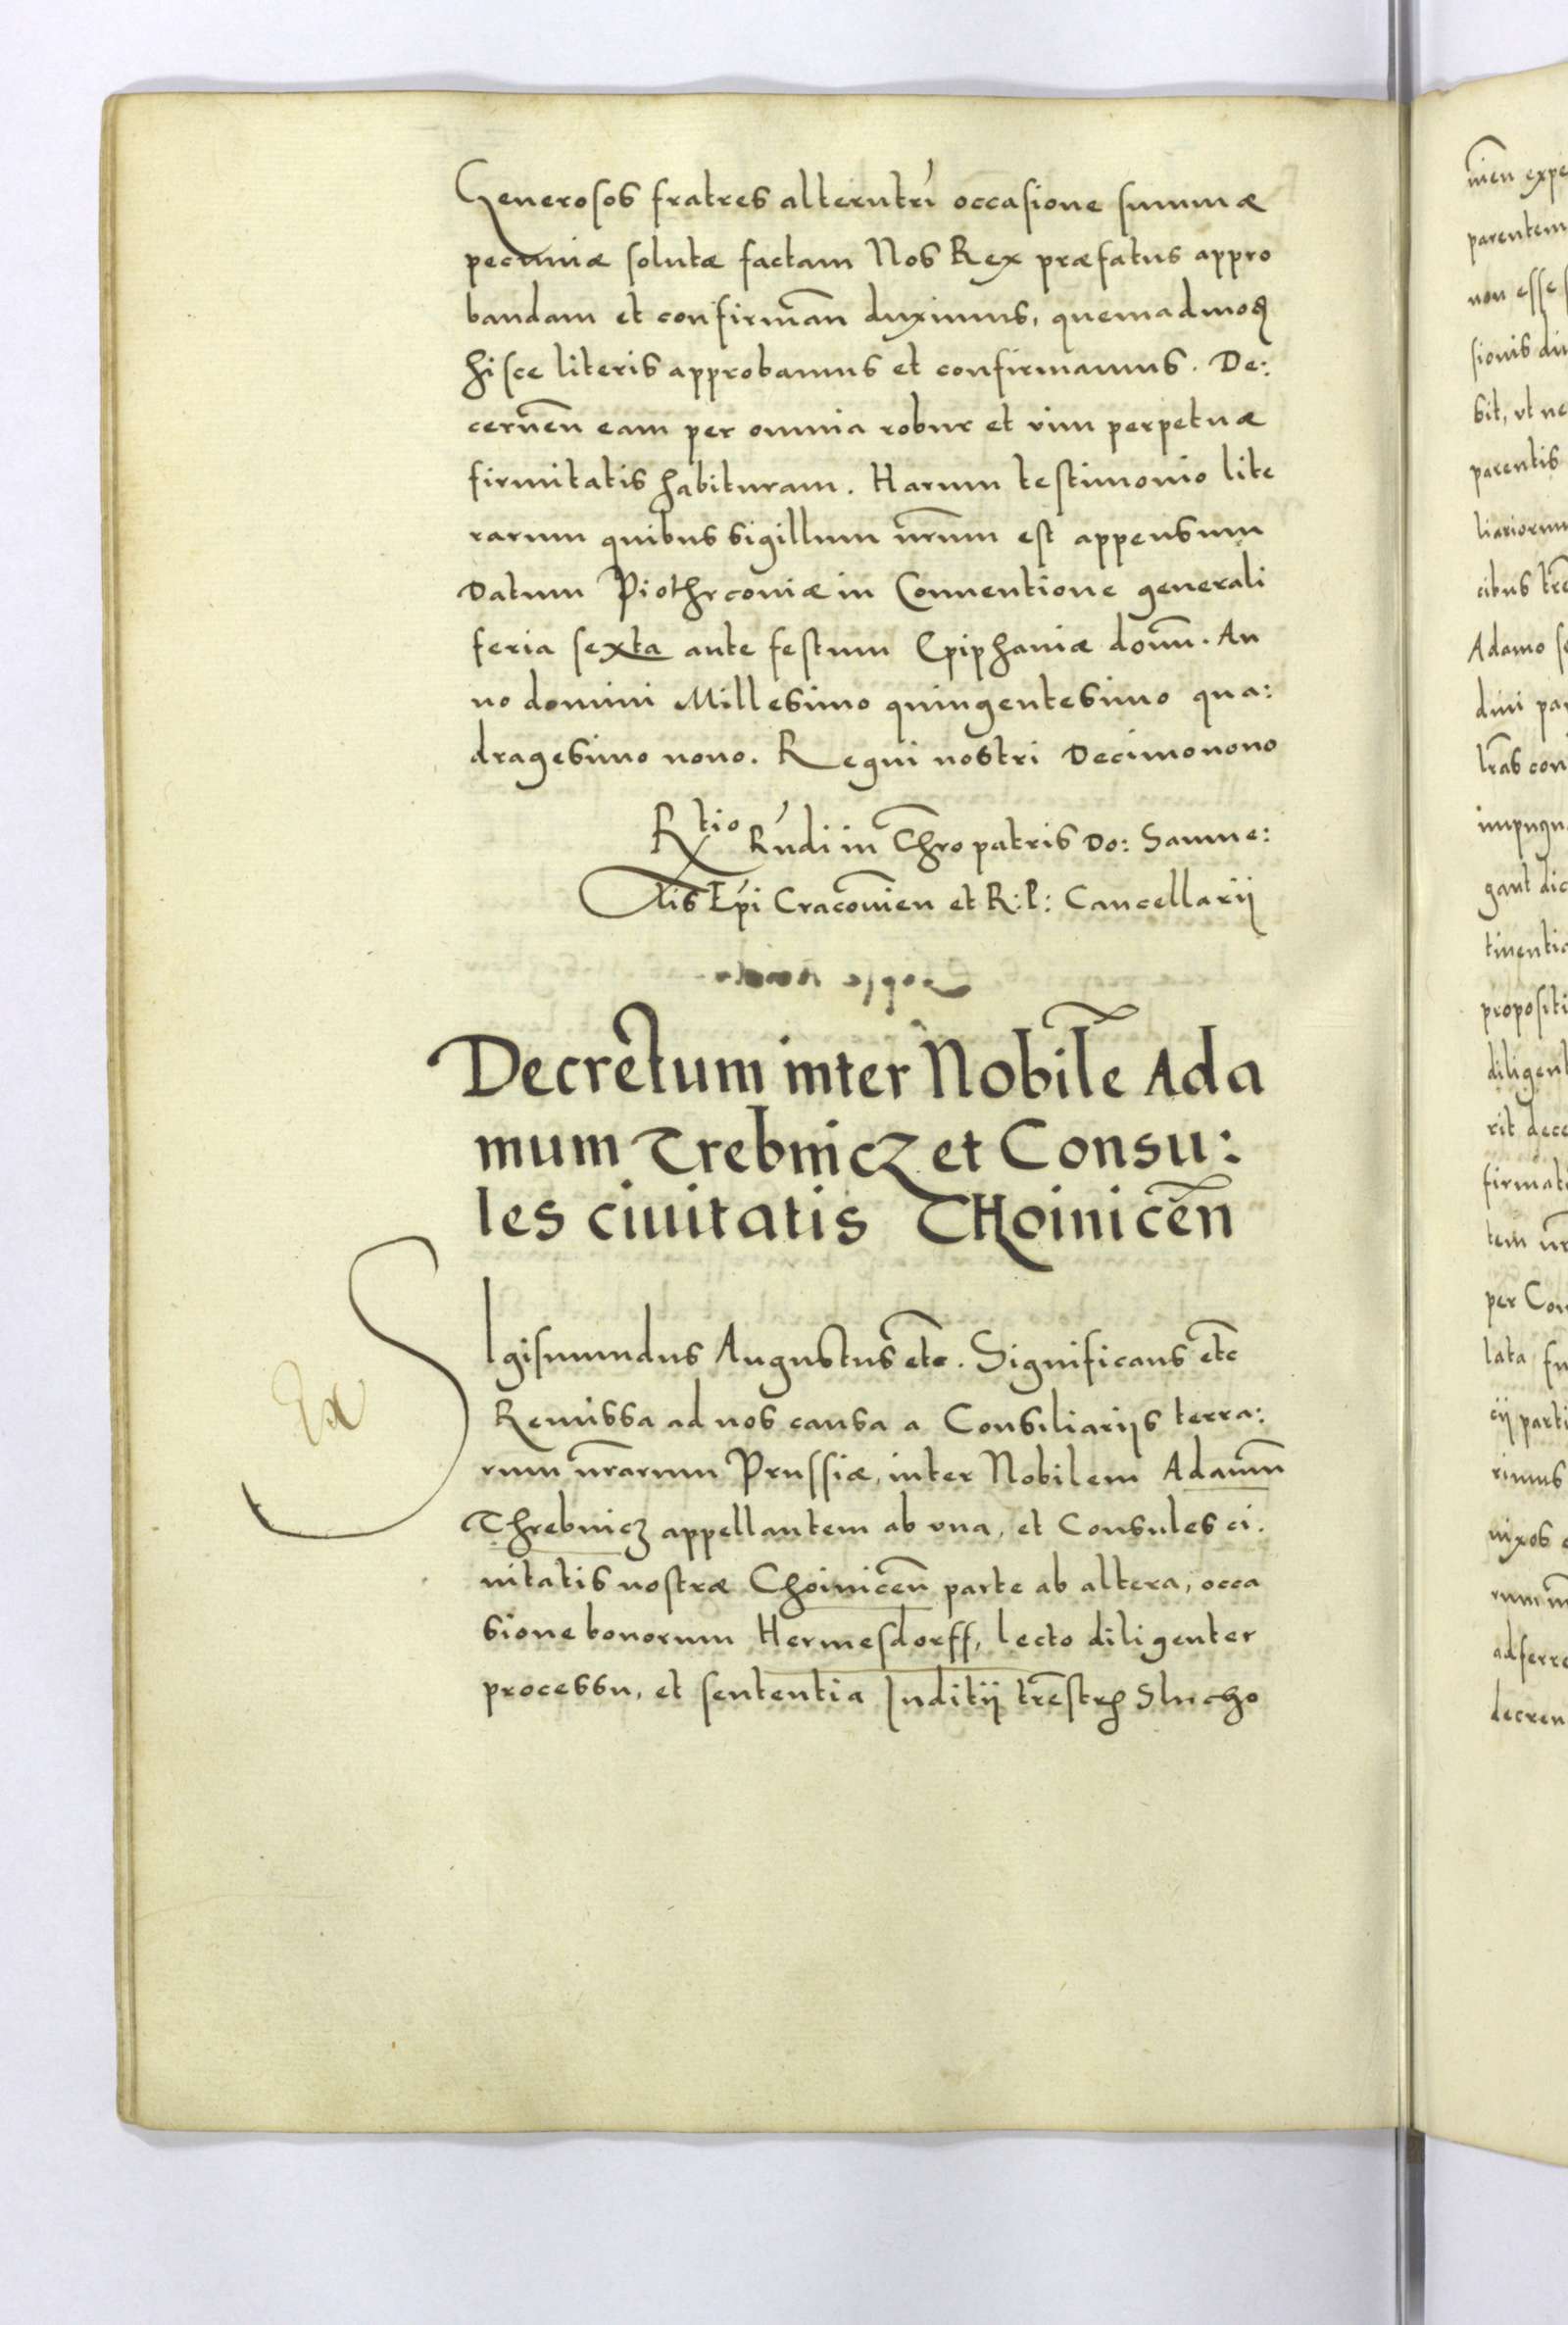 Generosos fratres alterutri occasione summæ
pecuniæ solutæ factam Nos Rex præfatus appro
bandam et confirman̄ duximus, quemadmoꝫ
hisce literis approbamus et confirmamus. De:
cernen̄ eam per omnia robur et vim perpetuæ
firmitatis habituram. Harum testimonio lite
rarum quibus sigillum nr̄um est appensum
Datum Piothrconiæ in Conuentione generali
feria sexta ante festum Epiphaniæ dom̄. An
no domini Millesimo quingentesimo qua:
dragesimo nono. Regni nostri Decimonono
Rtio Rn̄di in Chr̄o patris Do: Samue:
lis Ep̄i Cracouien̄ et R: P: Cancellarij
Decretum inter Nobile͂ Ada
mum Trebnicz et Consu:
les ciuitatis THoinicen̄
SIgismundus Augustus etc̄. Significans etc̄
Ex
Remissa ad nos causa a Consiliarijs terra:
rum nr̄arum Prussiæ, inter Nobilem Adamū
Threbnicz appellantem ab vna, et Consules ci.
uitatis nostræ Choinicen̄ parte ab altera, occa
sione bonorum Hermesdorff, lecto diligenter
processu, et sententia Juditij trēstrꝭ Slucho
men expe
parentem
non esse
sionis
sit, vt ne
parentis
liariorum
cibus
Adamo
dini
lr̄as con
impugn
gant dic
tinentia
propositi
diligent
rit dece
firmat
tem nr
per Con
lata
cij parti
rimus
nixos
adferre
decreu